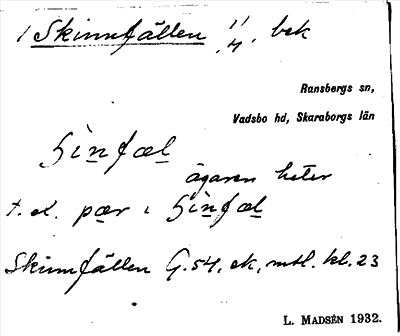 1 Skinnfällen 1/4. bek
Ransbergs sn,
Vadsbo hd, Skaraborgs län
ʃìnfæl
ägaren heter
t. ex. pær i ʃìnfæl
Skinnfällen G. 54, ek, mtl. kl. 23
L. MADSÉN 1932.